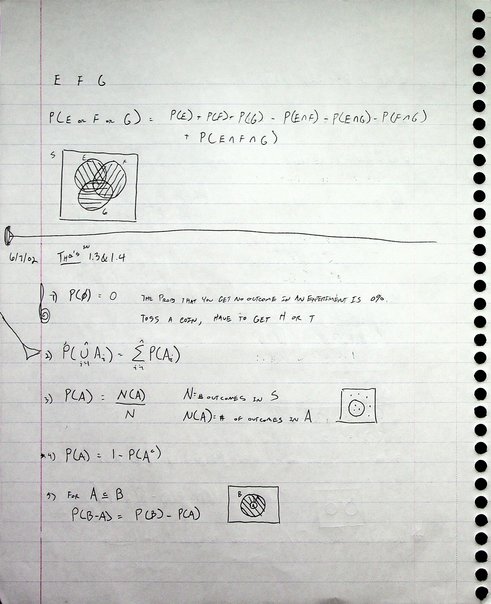 E F G
P(E or F or G) = P(E) + P(F) + P(G) - P(E∩F) - P(E∩G) - P(F∩G)
+ P(E∩F∩G)
S
E F
G
6/7/02 THM'S IN 1.3 & 1.4
1) P(∅) = 0 THE PROB THAT YOU GET NO OUTCOME IN AN EXPERIMENT IS 0%.
TOSS A COIN, HAVE TO GET H OR T
2) P(∪ Ai) = Σ P(Ai)
3) P(A) = N(A)/N N = # OUTCOMES IN S
N(A) = # OF OUTCOMES IN A
4) P(A) = 1 - P(Aᶜ)
5) FOR A ⊆ B
P(B-A) = P(B) - P(A)
B
A